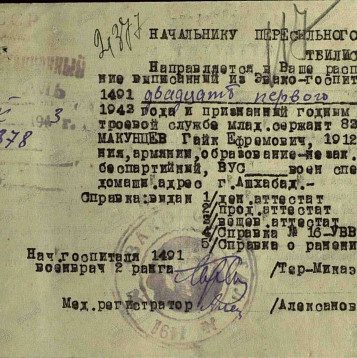 2377
117
НАЧАЛЬНИКУ ПЕРЕСЫЛЬНОГО
ТБИЛИС
Направляется в Ваше расп
ние выписанный из Эвако-госпит
1491 двадцать первого
1943 года и признанный годным
троевой службе млад.сержант 83
МАКУНЦЕВ Гайк Ефремович, 1912
ния, армянин, образование-незак.
беспартийный, ВУС воен спе
домашн адрес г.Ашхабад.-
Справка:выдан 1/ден.аттестат
2/прод.аттестат
3/вещев.аттестат
4/Справка № 16-УВВ
5/Справка о ранени
Нач.госпиталя 1491
военврач 2 ранга /Тер-Миназ
Мед.регистратор /Алексанов
378
1491